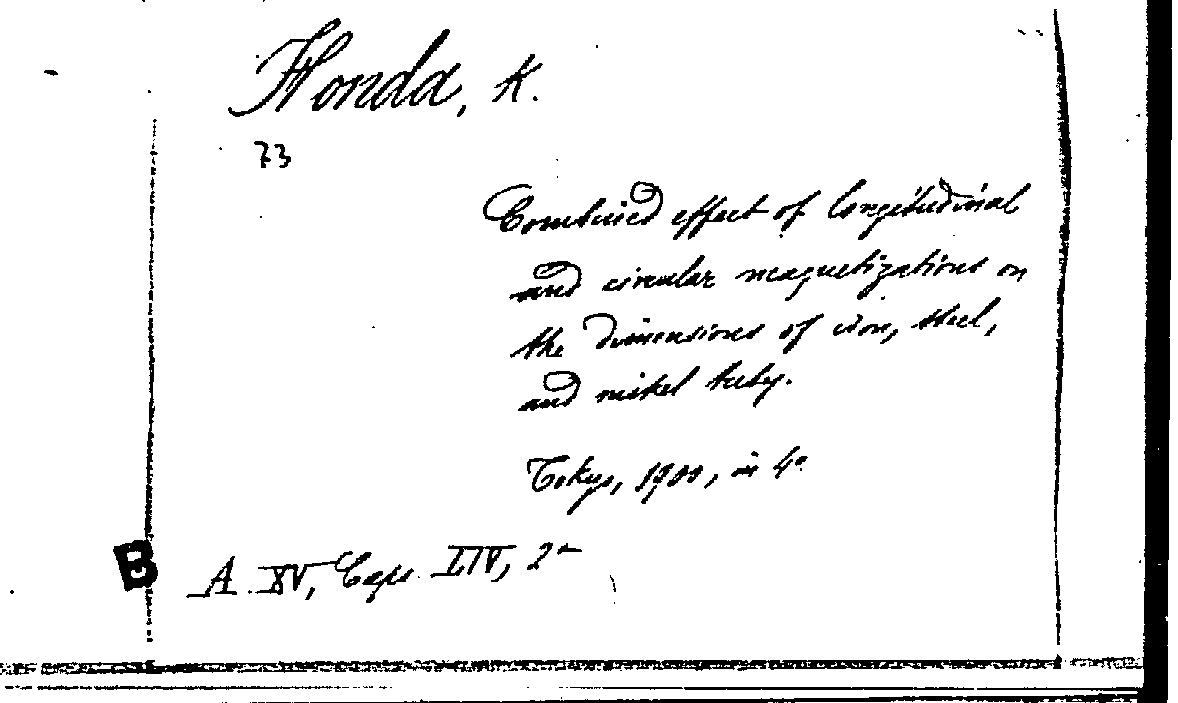 Honda, K.
73
Combined effect of longitudinal
and circular magnetizations on
the dimensions of iron, steel,
and nikel tuby.
Tokyo, 1900, in 4°
B A XV, Caps LIV, 2